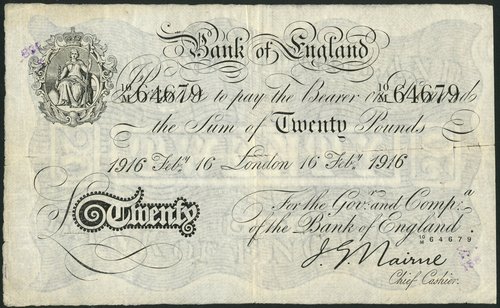 Bank of England
I Promise to pay the Bearer on Demand
10/M 64679 10/M 64679
the Sum of Twenty Pounds
1916 Feby. 16 London 16 Feby. 1916
For the Govr. and Compa.
Twenty
of the Bank of England.
10/M 64679
J. G. Nairne
Chief Cashier.